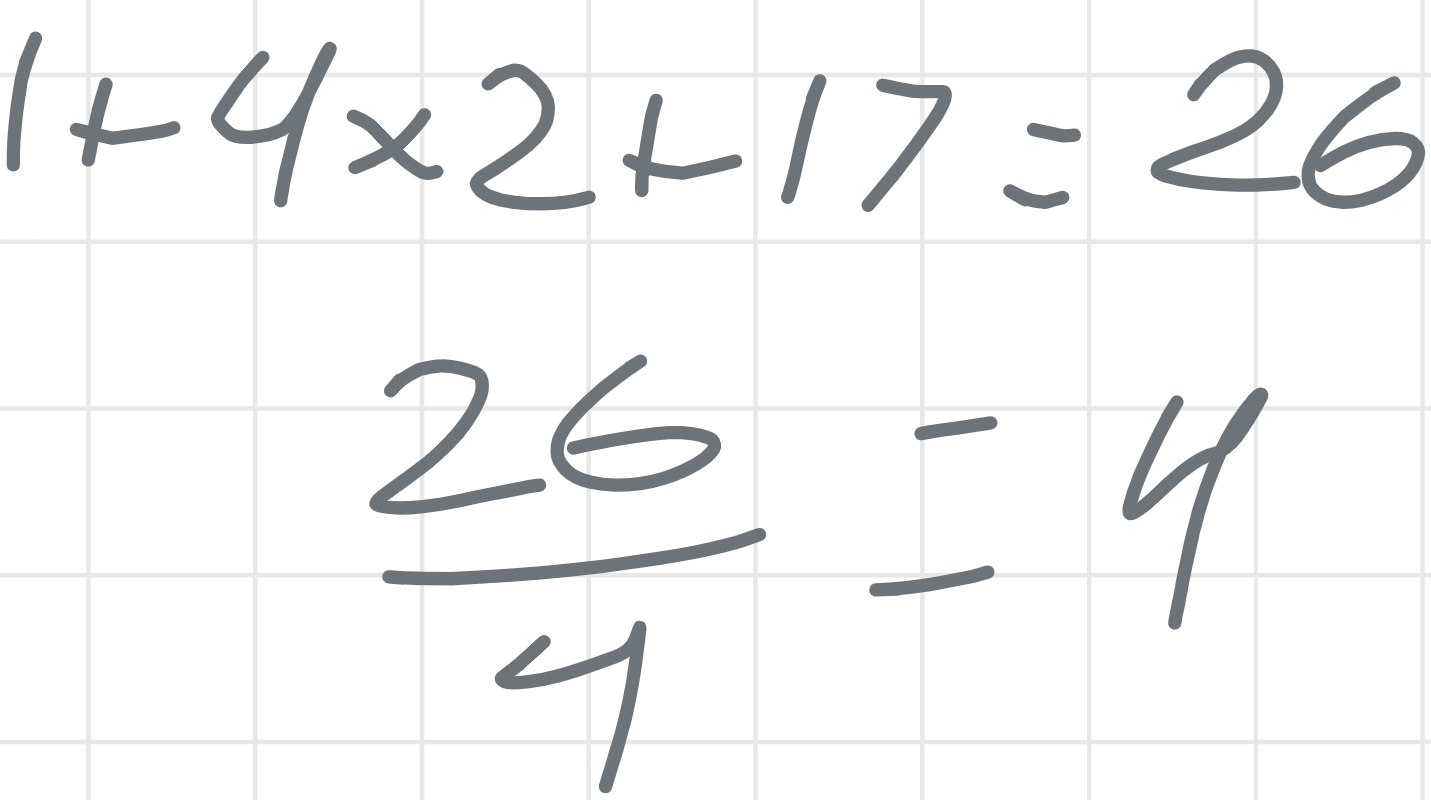 1+4×2+17=26
26/4 = 4